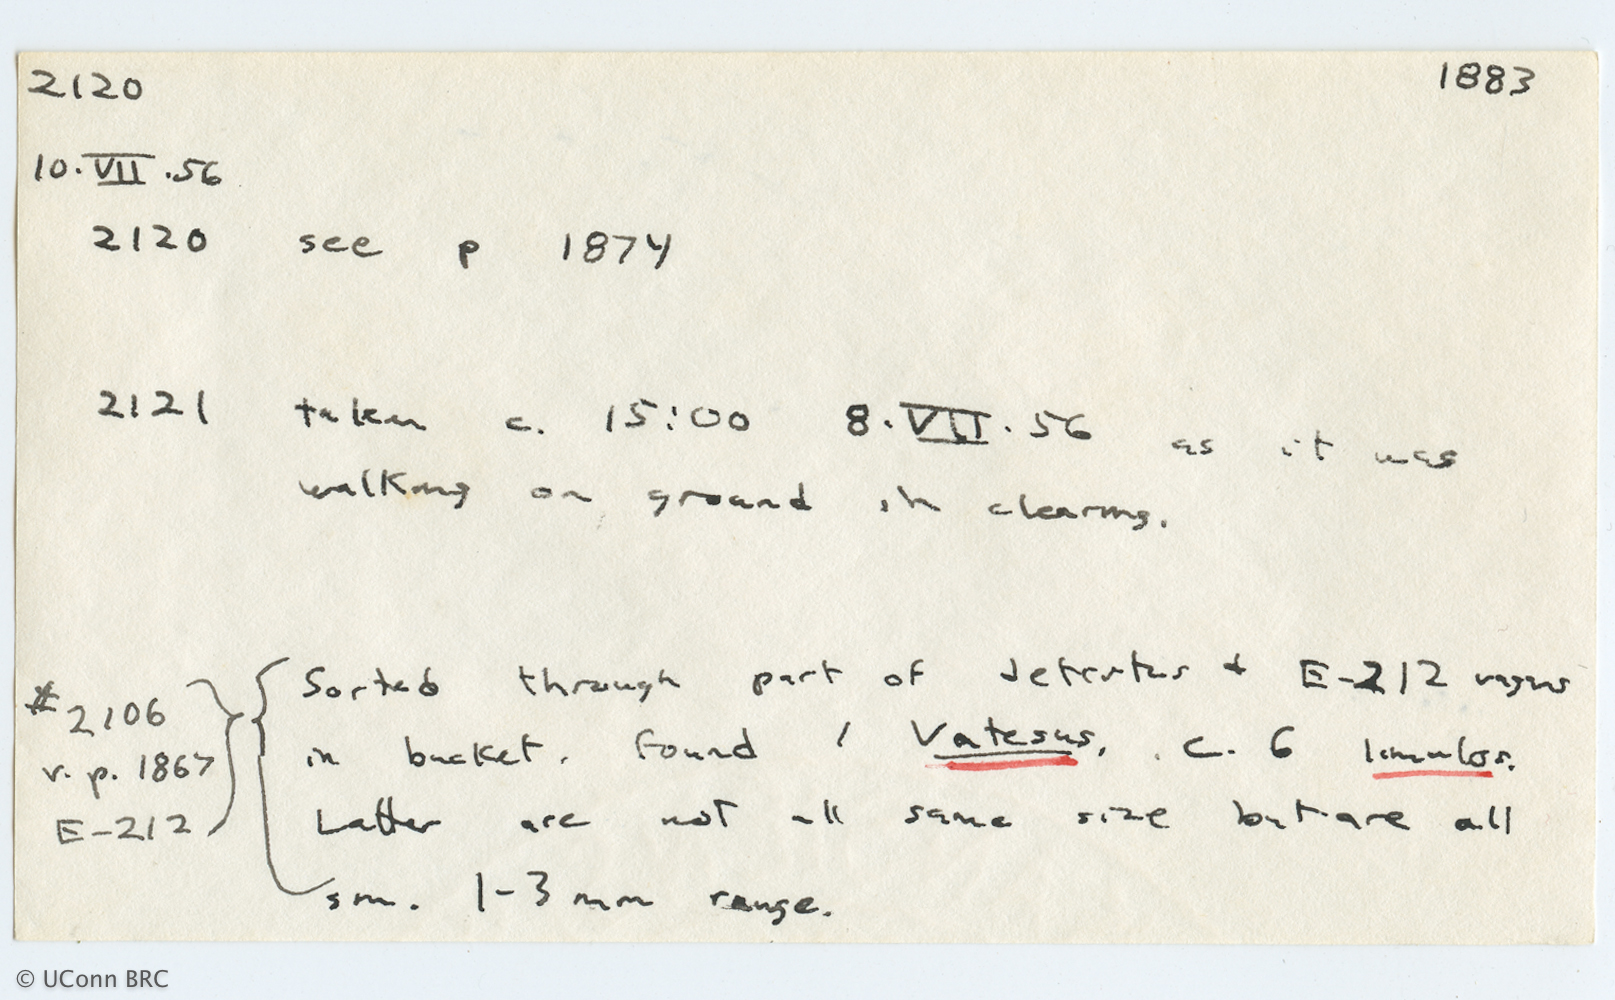 2120 1883
10.VII.56
2120 see p 1874
2121 taken c. 15:00 8.VII.56 as it was
walking on ground in clearing.
Sorted through part of detritus + E-212 vagus
#2106
in bucket. Found 1 Vatesus, c. 6 limulos.
v. p. 1867
Latter are not all same size but are all
E-212
sm. 1-3 mm range.
© UConn BRC